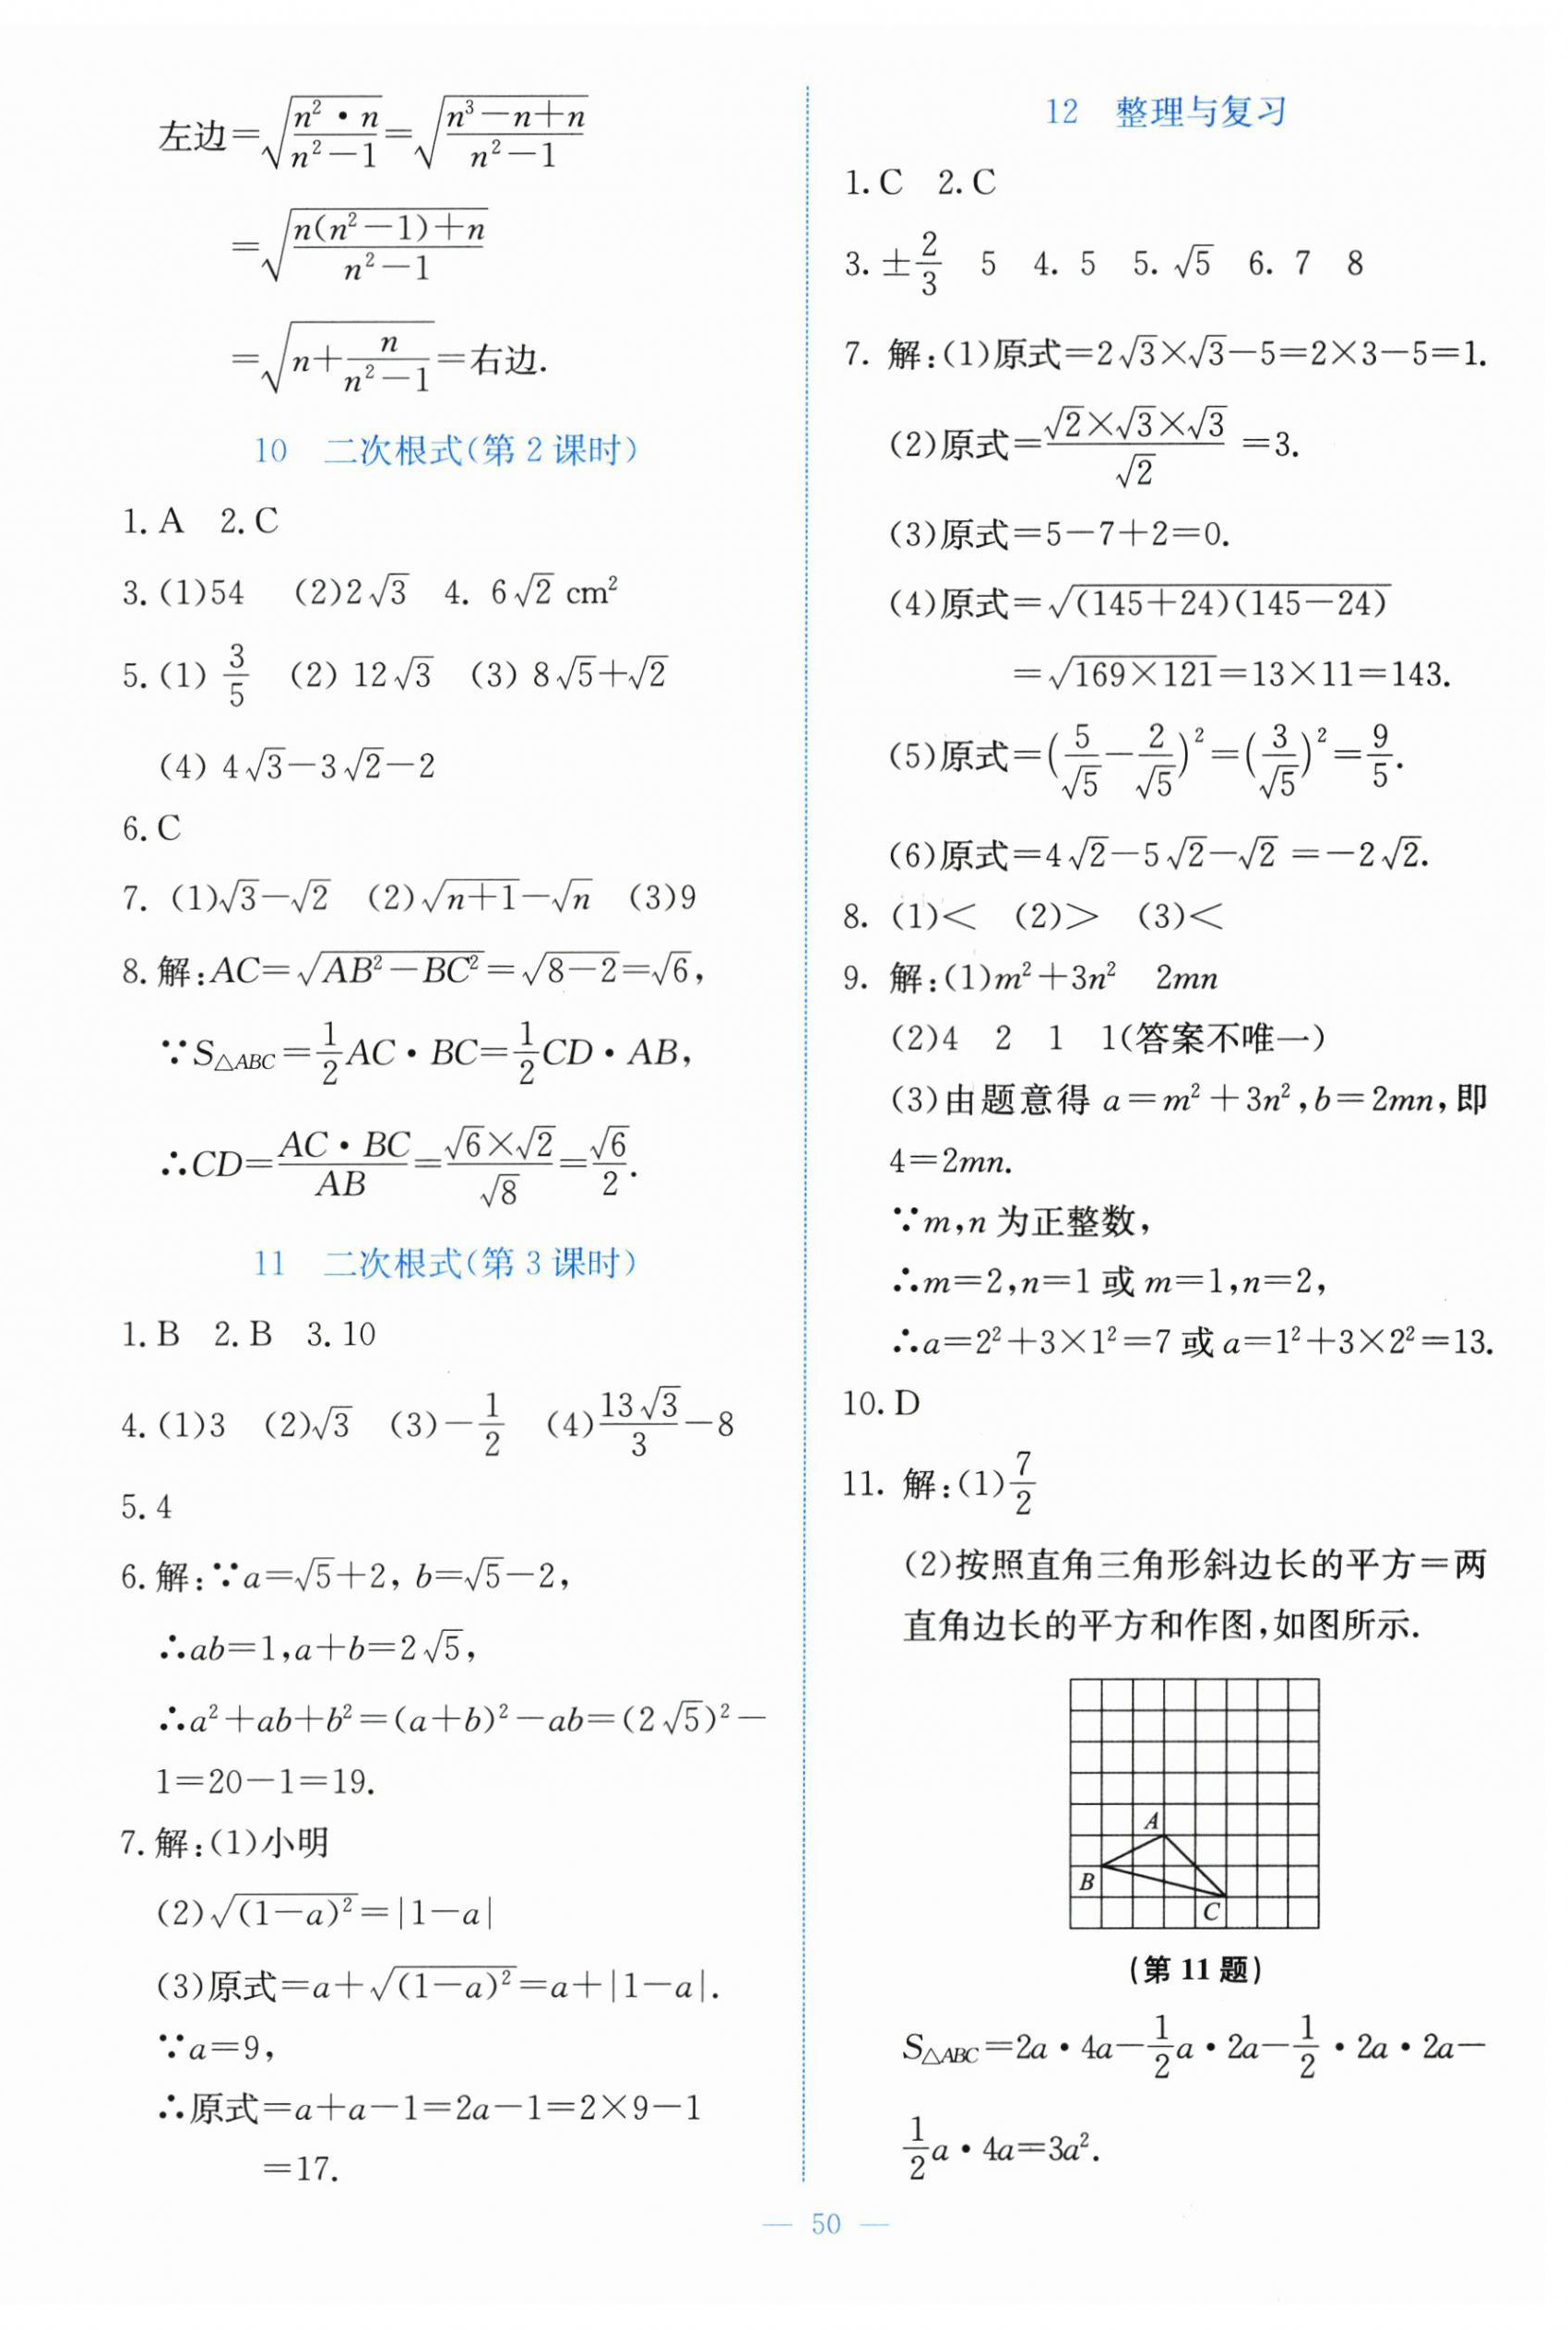 左边=√(n²·n/(n²-1))=√((n³-n+n)/(n²-1))
=√((n(n²-1)+n)/(n²-1))
=√(n+n/(n²-1))=右边.
10 二次根式(第2课时)
1. A 2. C
3. (1)54 (2)2√3 4. 6√2 cm²
5. (1) 3/5 (2) 12√3 (3) 8√5+√2
(4) 4√3-3√2-2
6. C
7. (1)√3-√2 (2)√(n+1)-√n (3)9
8. 解:AC=√(AB²-BC²)=√(8-2)=√6,
∵S△ABC=1/2AC·BC=1/2CD·AB,
∴CD=AC·BC/AB=√6×√2/√8=√6/2.
11 二次根式(第3课时)
1. B 2. B 3. 10
4. (1)3 (2)√3 (3)-1/2 (4)13√3/3-8
5. 4
6. 解:∵a=√5+2, b=√5-2,
∴ab=1,a+b=2√5,
∴a²+ab+b²=(a+b)²-ab=(2√5)²-
1=20-1=19.
7. 解:(1)小明
(2)√((1-a)²)=|1-a|
(3)原式=a+√((1-a)²)=a+|1-a|.
∵a=9,
∴原式=a+a-1=2a-1=2×9-1
=17.
12 整理与复习
1. C 2. C
3. ±2/3 5 4. 5 5. √5 6. 7 8
7. 解:(1)原式=2√3×√3-5=2×3-5=1.
(2)原式=√2×√3×√3/√2=3.
(3)原式=5-7+2=0.
(4)原式=√((145+24)(145-24))
=√(169×121)=13×11=143.
(5)原式=(5/√5-2/√5)²=(3/√5)²=9/5.
(6)原式=4√2-5√2-√2=-2√2.
8. (1)< (2)> (3)<
9. 解:(1)m²+3n² 2mn
(2)4 2 1 1(答案不唯一)
(3)由题意得a=m²+3n²,b=2mn,即
4=2mn.
∵m,n为正整数,
∴m=2,n=1或m=1,n=2,
∴a=2²+3×1²=7或a=1²+3×2²=13.
10. D
11. 解:(1)7/2
(2)按照直角三角形斜边长的平方=两
直角边长的平方和作图,如图所示.
A
B
C
(第11题)
S△ABC=2a·4a-1/2a·2a-1/2·2a·2a-
1/2a·4a=3a².
— 50 —